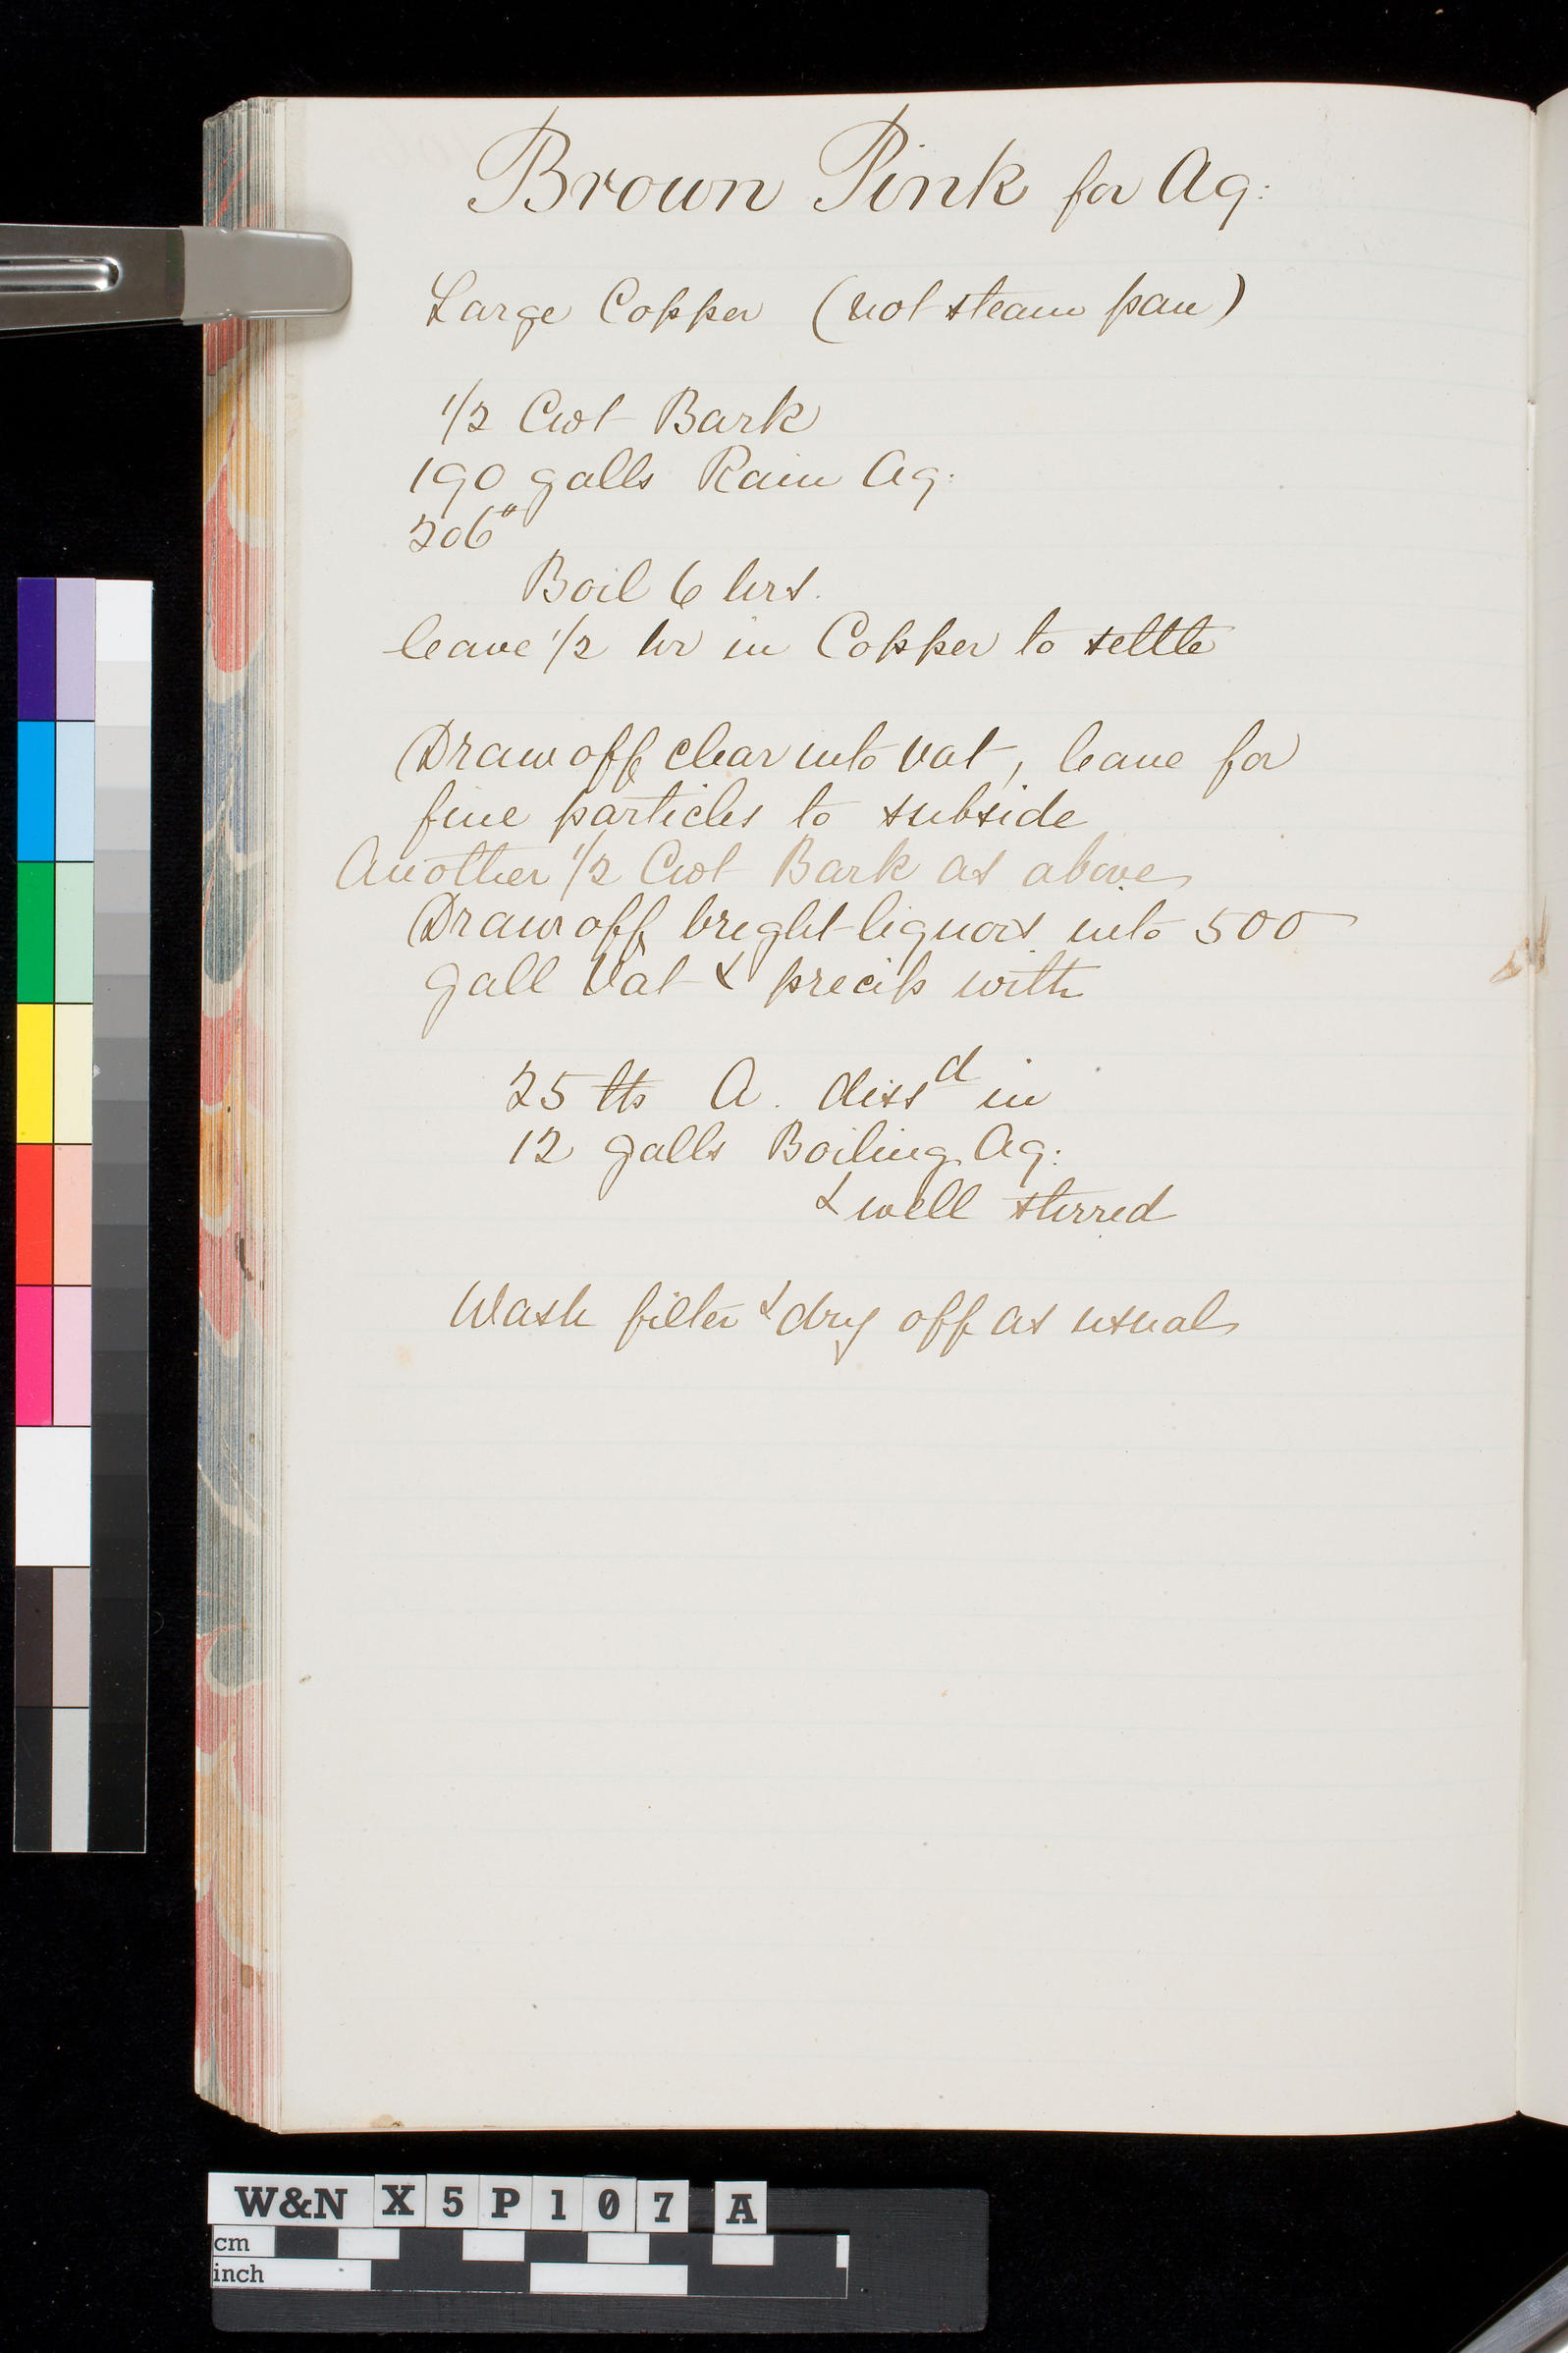 Brown Pink for Aq:
Large Copper (not steam pan)
1/2 Cwt Bark
190 galls Rain Aq:
206°
Boil 6 hrs.
leave 1/2 hr in Copper to settle
Draw off clear into vat, leave for
fine particles to subside
Another 1/2 Cwt Bark as above
Draw off bright liquors into 500
gall Vat & precip with
25 lbs A. dissd in
12 galls Boiling Aq:
& well stirred
Wash filter & dry off as usual
W&N X5P107 A
cm
inch